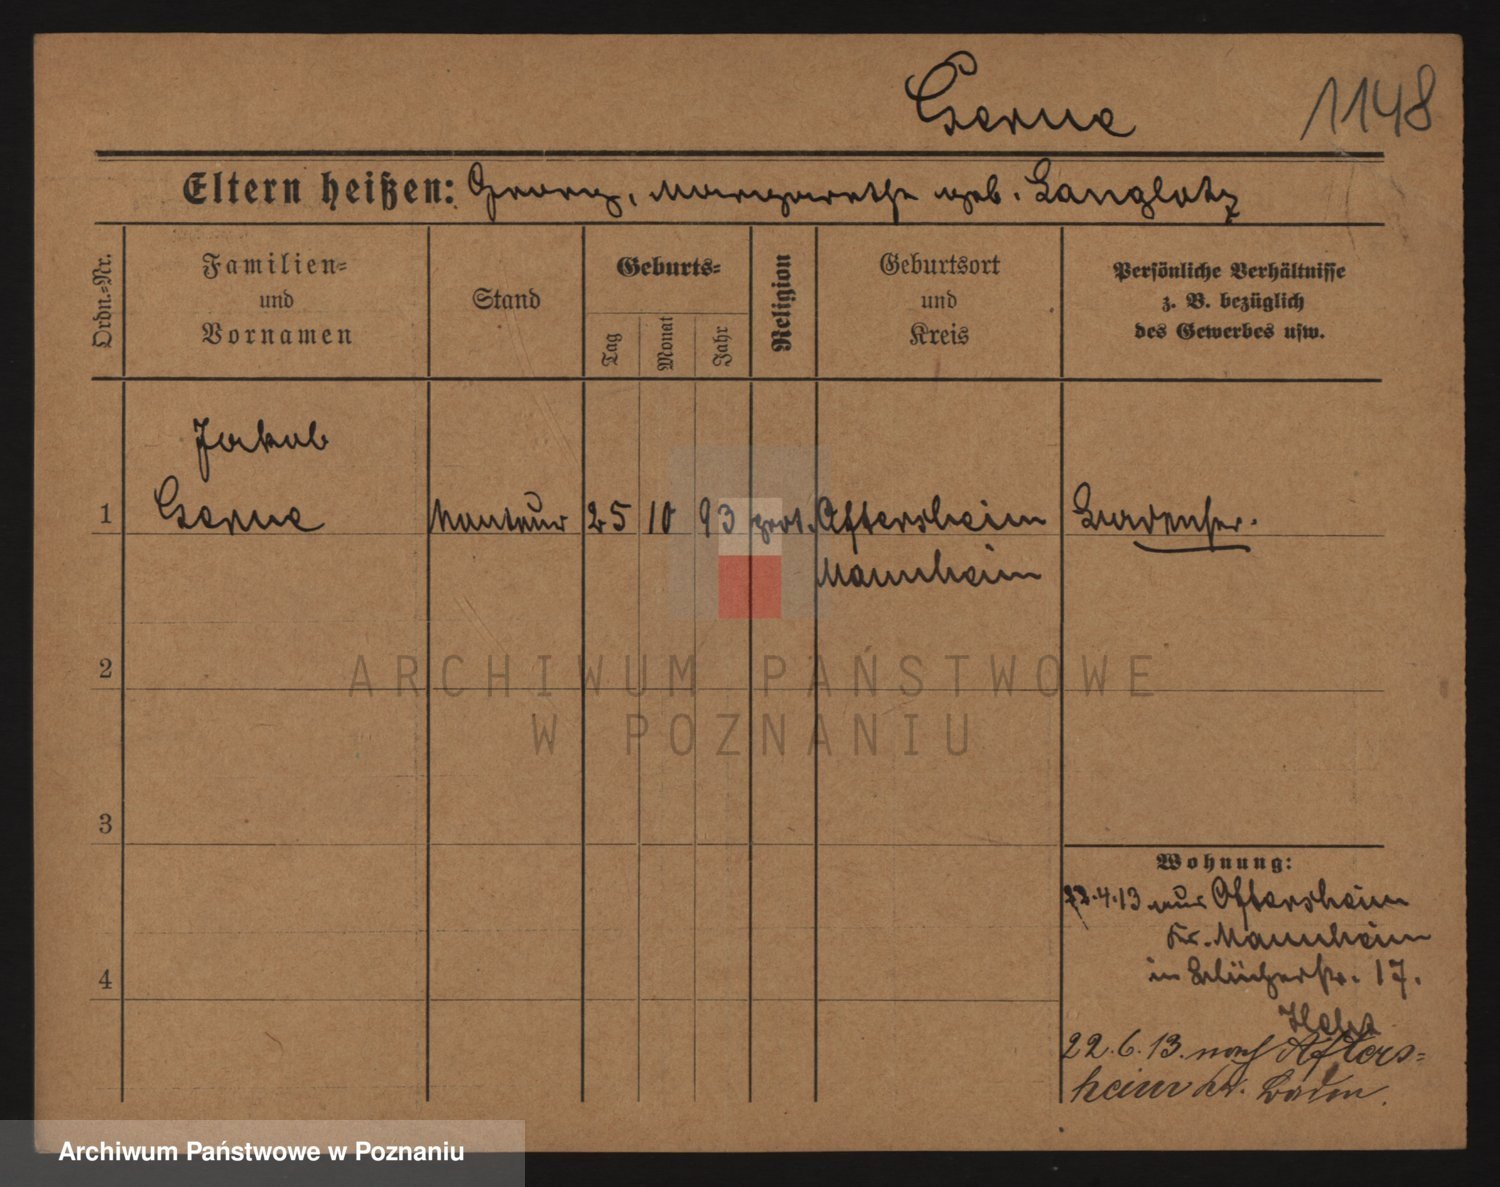 Gerne 1148
Eltern heißen: Georg, Margarethe geb. Langlotz
Ordn.=Nr.
Familien=
und
Vornamen
Stand
Geburts=
Tag
Monat
Jahr
Religion
Geburtsort
und
Kreis
Persönliche Verhältnisse
z. B. bezüglich
des Gewerbes usw.
Jakob
1 Gerne Monteur 25 10 93 prot. Oftersheim Badenser.
Mannheim
2
ARCHIWUM PAŃSTWOWE
W POZNANIU
3
Wohnung:
22.4.13 aus Oftersheim
Kr. Mannheim
in Blücherstr. 17.
4
22.6.13. nach Ofters=
heim Baden.
Archiwum Państwowe w Poznaniu